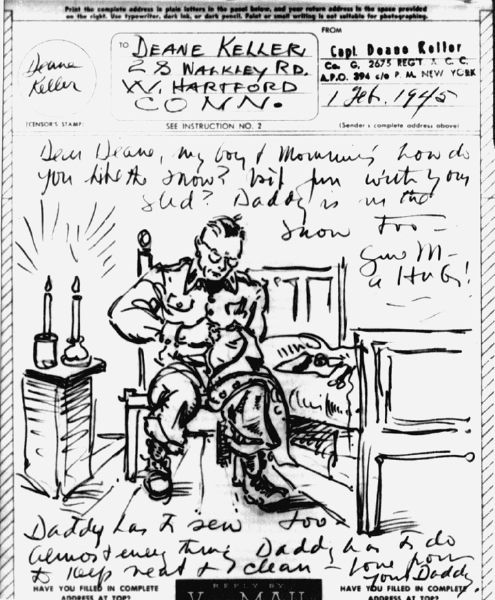 Print the complete address in plain letters in the panel below, and your return address in the space provided
on the right. Use typewriter, dark ink, or dark pencil. Faint or small writing is not suitable for photographing.
FROM
TO
DEANE KELLER
28 WALKLEY RD.
W. HARTFORD
CONN.
Capt. Deane Keller
Co. G, 2675 REGT A.C.C.
A.P.O. 394 c/o P.M. NEW YORK
1 Feb. 1945
Deane
Keller
(CENSOR'S STAMP)
SEE INSTRUCTION NO. 2
(Sender's complete address above)
Dear Deane, my boy & Mommie's how do
you like the snow? fun with your
sled? Daddy is in the
snow too –
Give M –
a Hug!
Daddy has to sew too –
almost every thing Daddy has to do
to keep neat & clean – love from
your Daddy.
HAVE YOU FILLED IN COMPLETE
ADDRESS AT TOP?
REPLY BY
V-MAIL
HAVE YOU FILLED IN COMPLETE
ADDRESS AT TOP?